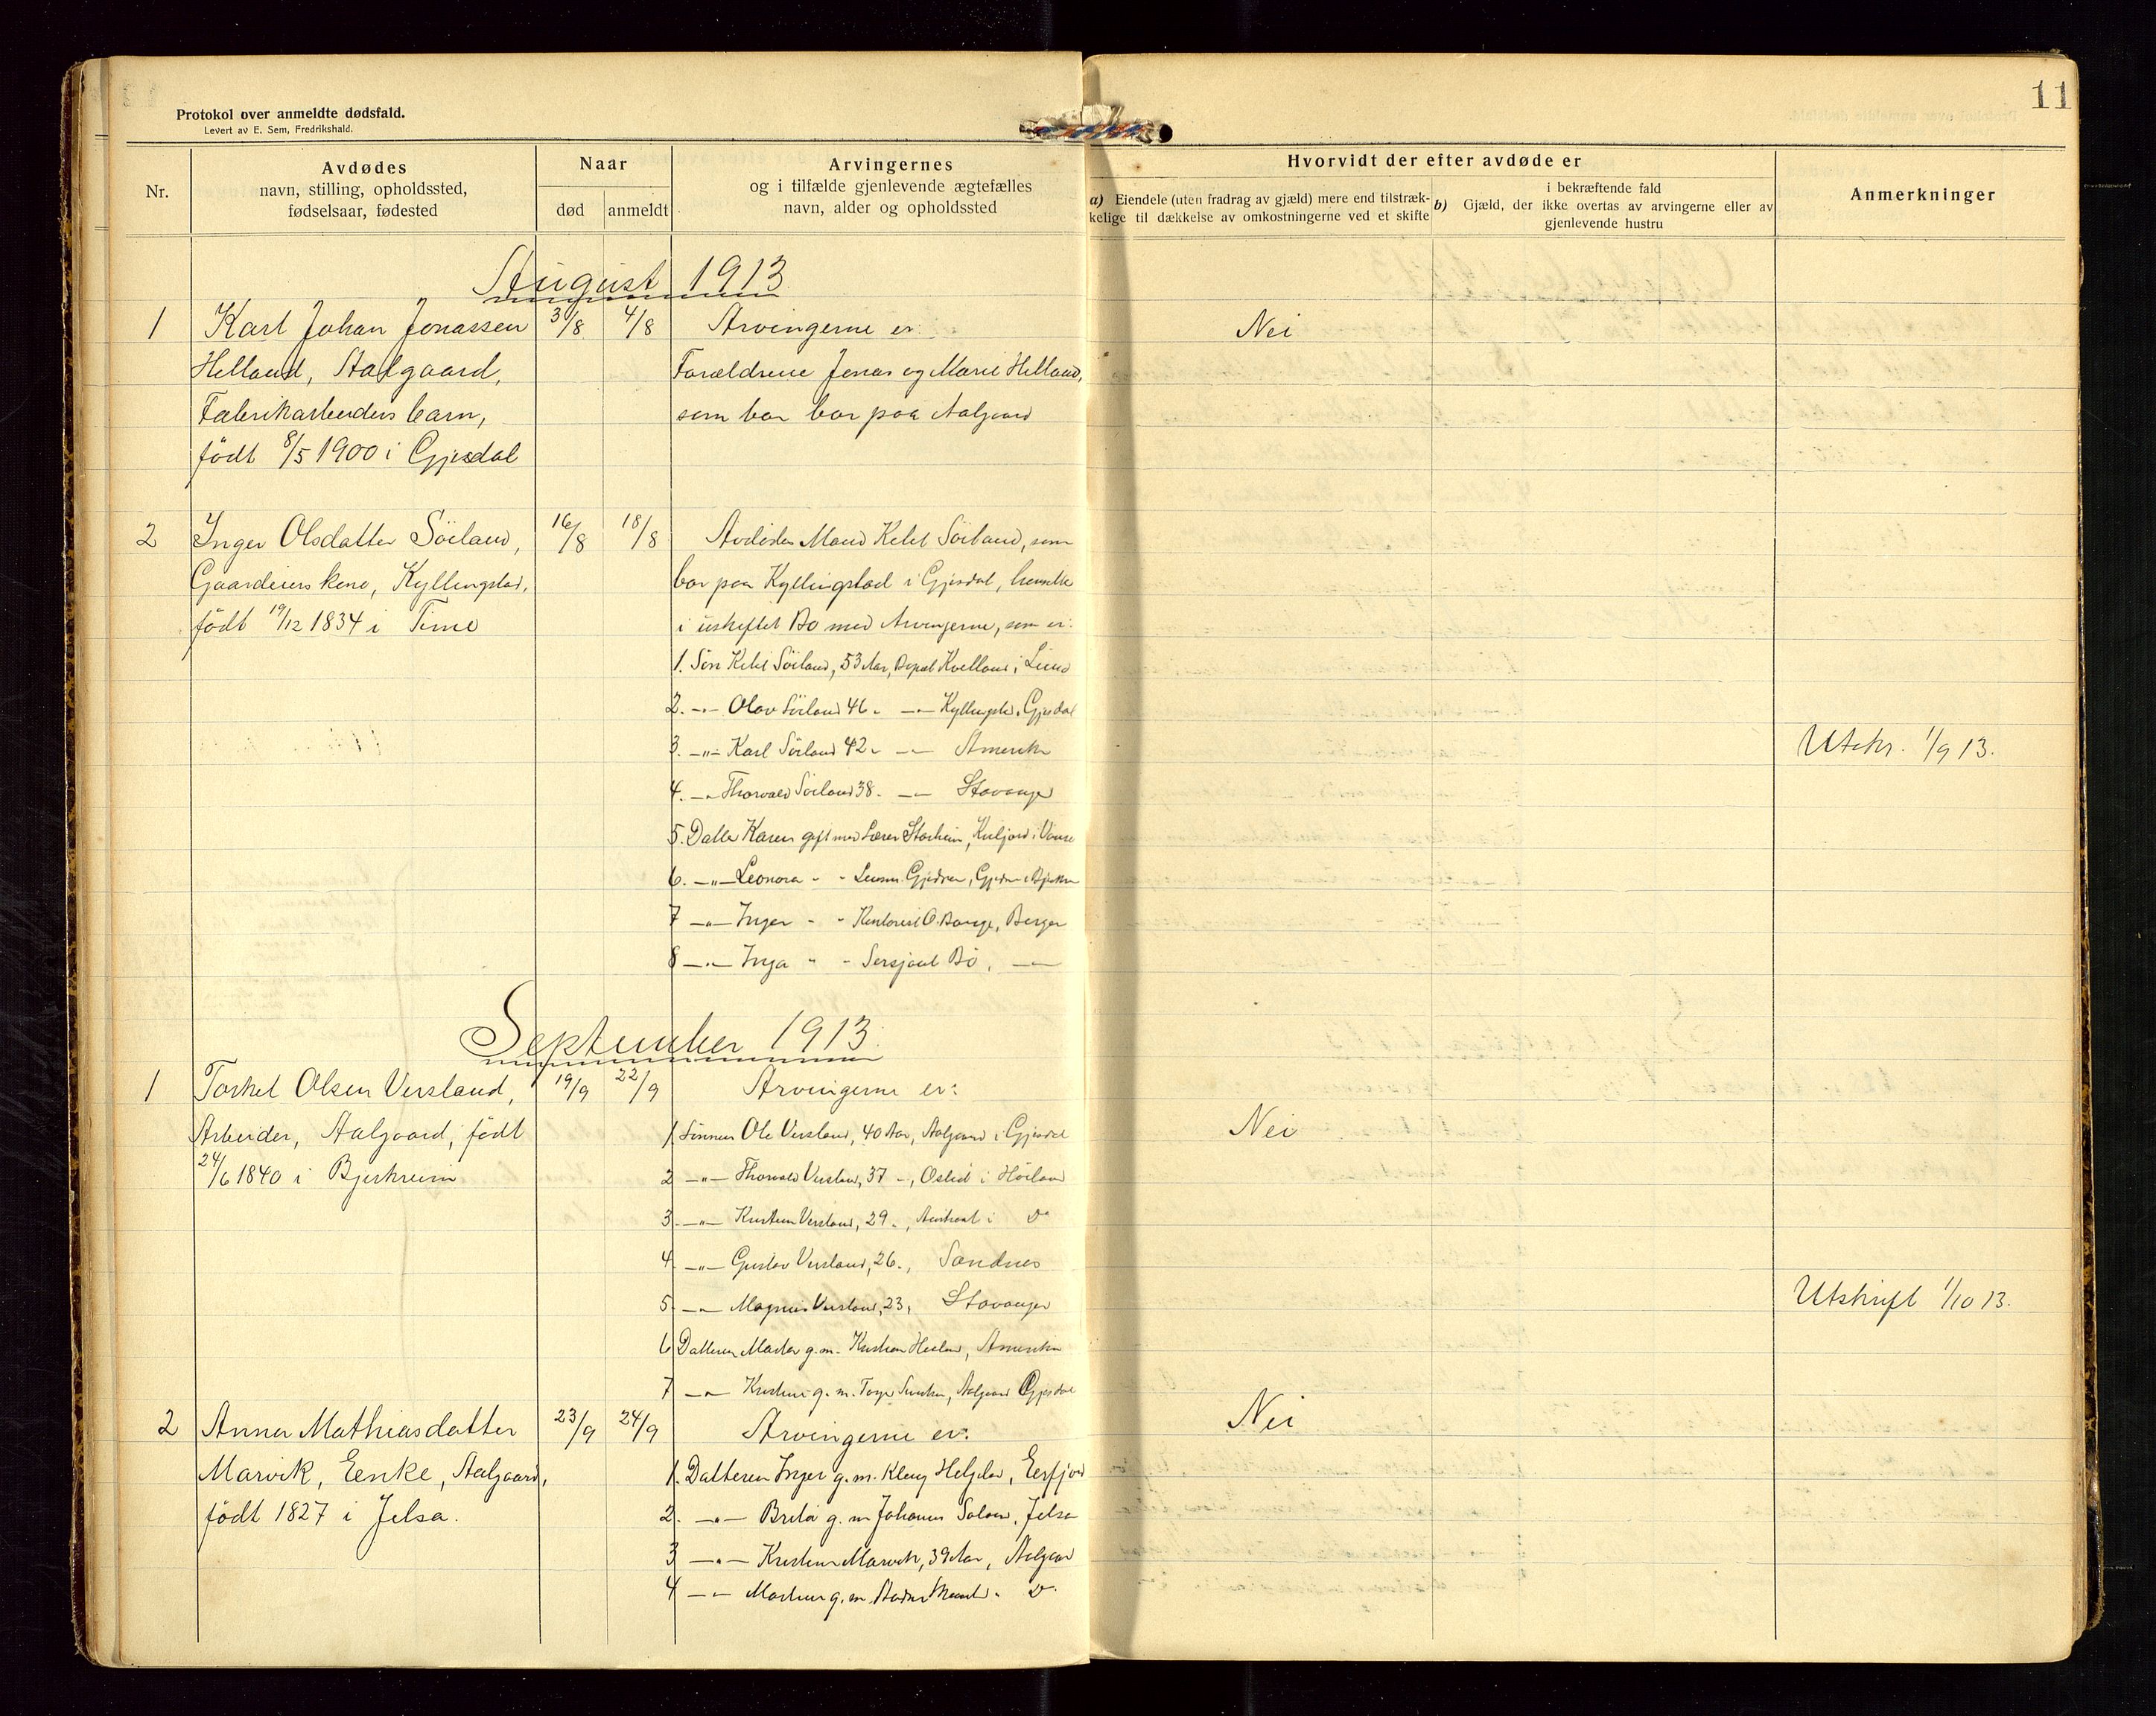 11
Protokol over anmeldte dødsfald.
Levert av E. Sem, Fredrikshald.
Nr.
Avdødes
navn, stilling, opholdssted,
fødselsaar, fødested
Naar
død
anmeldt
Arvingernes
og i tilfælde gjenlevende ægtefælles
navn, alder og opholdssted
Hvorvidt der efter avdøde er
a) Eiendele (uten fradrag av gjæld) mere end tilstræk-
kelige til dækkelse av omkostningerne ved et skifte
i bekræftende fald
b) Gjæld, der ikke overtas av arvingerne eller av
gjenlevende hustru
Anmerkninger
August 1913
1 Karl Johan Jonassen 3/8 4/8 Arvingerne er: Nei
Helland, Aalgaard, Forældrene Jonas og Marie Helland,
Fabrikarbeiders barn, som bor bor paa Aalgaard
født 8/5 1900 i Gjesdal
2 Inger Olsdatter Söiland, 16/8 18/8 Avdødes Mand Ketel Söiland, som
Gaardeiers kone, Kyllingstad, bor paa Kyllingstad i Gjesdal,
født 19/12 1834 i Time i uskiftet Bo med Arvingerne, som er:
1. Sön Ketel Söiland, 53 Aar, Bopæl Kvelland i Lund
2. -"- Olav Söiland 46 - -"- Kyllingstd. Gjesdal
3. -"- Karl Söiland 42 - -"- Amerika
Utskr. 1/9 13.
4. -"- Thorvald Söiland 38 - -"- Stavanger
5. Datter Karen gift med Lærer Storheim, i Vanse
6. -"- Leonora - - Gjedrem, Gjedrem i Bjerkr
7 -"- Inger - - Kontorist O. Bauge, Bergen
8 -"- Inga - - Sersjant Bö, -"-
September 1913.
1 Torkel Olsen Versland, 19/9 22/9 Arvingerne er:
Arbeider, Aalgaard, født 1 Sönnen Ole Versland, 40 Aar, Aalgaard i Gjesdal Nei
24/6 1840 i Bjerkreim 2 -"- Thorvald Versland, 37 -, Osli i Höiland
3 -"- Kristian Versland, 29 -, Austraat i Do
4 -"- Gustav Versland, 26 -, Sandnes
5 -"- Magnus Versland, 23, Stavanger Utskrift 1/10 13.
6 Datteren Marta g. m. Kristian, Amerika
7 -"- Kristine g. m. Torger, Aalgaard Gjesdal
2 Anna Mathiasdatter 23/9 24/9 Arvingerne er: Nei
Marvik, Enke, Aalgaard, 1. Datteren Inger g. m. Kleng Helgeland, Erfjord
født 1827 i Jelsa. 2. -"- Brita g. m Johannes, Jelsa
3 -"- Kristine Marvik, 39 Aar, Aalgaard
4 -"- g. m. Do